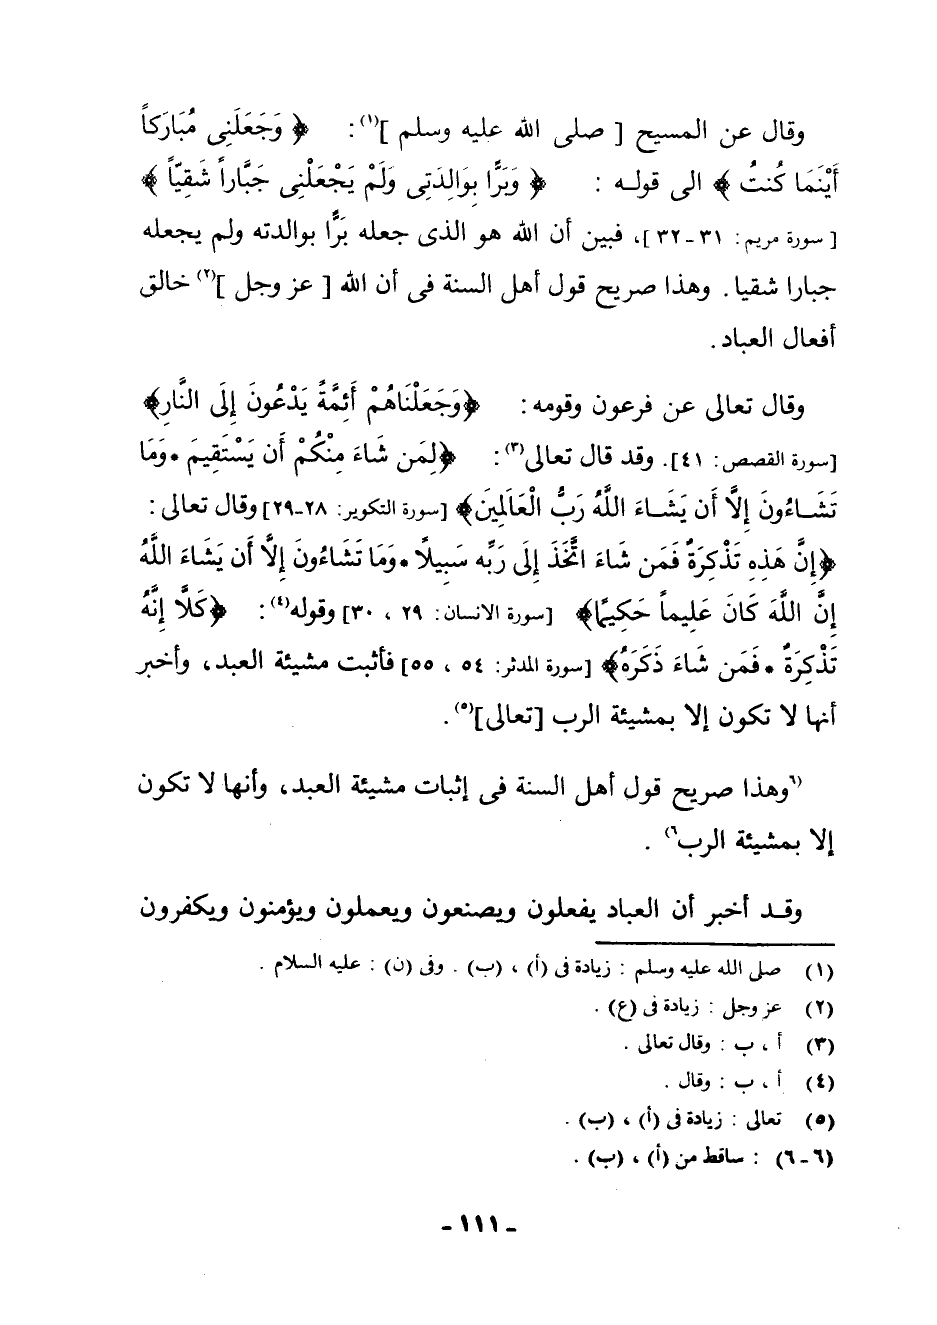 وقال عن المسيح [ صلى الله عليه وسلم ](١): ﴿ وَجَعَلَنِى مُبَارَكاً
أَيْنَمَا كُنتُ ﴾ الى قولـه : ﴿ وَبَرًّا بِوَالِدَتِى وَلَمْ يَجْعَلْنِى جَبَّاراً شَقِيّاً ﴾
[ سورة مريم: ٣١-٣٢ ]، فبين أن الله هو الذى جعله بَرًّا بوالدته ولم يجعله
جبارا شقيا. وهذا صريح قول أهل السنة فى أن الله [ عز وجل ](٢) خالق
أفعال العباد.
وقال تعالى عن فرعون وقومه: ﴿وَجَعَلْنَاهُمْ أَئِمَّةً يَدْعُونَ إِلَى النَّارِ﴾
[سورة القصص: ٤١]. وقد قال تعالى(٣): ﴿لِمَن شَاءَ مِنْكُمْ أَن يَسْتَقِيمَ • وَمَا
تَشَـاءُونَ إِلاَّ أَن يَشَـاءَ اللَّهُ رَبُّ الْعَالَمِينَ﴾ [سورة التكوير: ٢٨-٢٩] وقال تعالى :
﴿إِنَّ هَذِهِ تَذْكِرَةٌ فَمَن شَاءَ اتَّخَذَ إِلَى رَبِّه سَبِيلاً • وَمَا تَشَاءُونَ إِلاَّ أَن يَشَاءَ اللَّهُ
إِنَّ اللَّهَ كَانَ عَلِيماً حَكِيمًا﴾ [سورة الانسان: ٢٩ ، ٣٠] وقوله(٤): ﴿كَلَّا إِنَّهُ
تَذْكِرَةٌ • فَمَن شَاءَ ذَكَرَهُ﴾ [سورة المدثر: ٥٤ ، ٥٥] فأثبت مشيئة العبد، وأخبر
أنها لا تكون إلا بمشيئة الرب [تعالى](٥).
(٦وهذا صريح قول أهل السنة فى إثبات مشيئة العبد، وأنها لا تكون
إلا بمشيئة الرب٦) .
وقـد أخبر أن العباد يفعلون ويصنعون ويعملون ويؤمنون ويكفرون
(١) صلى الله عليه وسلم : زيادة فى (أ) ، (ب) . وفى (ن) : عليه السلام .
(٢) عز وجل : زيادة فى (ع) .
(٣) أ ، ب : وقال تعالى .
(٤) أ ، ب : وقال .
(٥) تعالى : زيادة فى (أ) ، (ب) .
(٦-٦) : ساقط من (أ) ، (ب) .
- ١١١ -